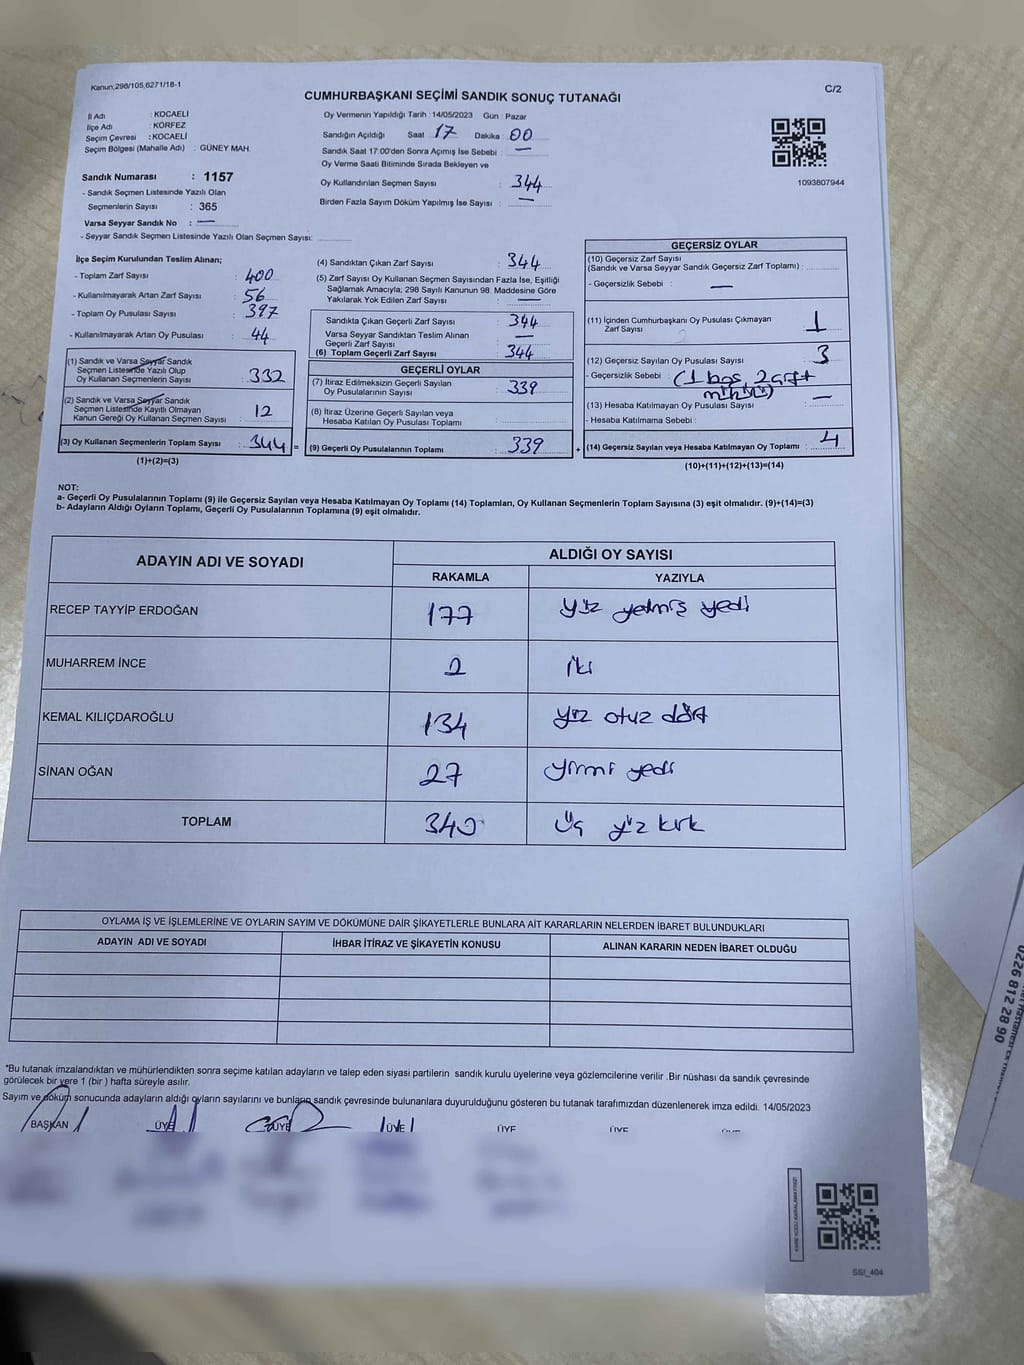 Kanun;298/105,6271/18-1
C/2
CUMHURBAŞKANI SEÇİMİ SANDIK SONUÇ TUTANAĞI
İl Adı : KOCAELİ
İlçe Adı : KÖRFEZ
Seçim Çevresi : KOCAELİ
Seçim Bölgesi (Mahalle Adı) : GÜNEY MAH.
Sandık Numarası : 1157
- Sandık Seçmen Listesinde Yazılı Olan
Seçmenlerin Sayısı : 365
Varsa Seyyar Sandık No : —
- Seyyar Sandık Seçmen Listesinde Yazılı Olan Seçmen Sayısı:
Oy Vermenin Yapıldığı Tarih :14/05/2023 Gün : Pazar
Sandığın Açıldığı Saat : 17 Dakika : 00
Sandık Saat 17:00'den Sonra Açımış İse Sebebi : —
Oy Verme Saati Bitiminde Sırada Bekleyen ve
Oy Kullandırılan Seçmen Sayısı : 344
Birden Fazla Sayım Döküm Yapılmış İse Sayısı : —
1093807944
İlçe Seçim Kurulundan Teslim Alınan;
- Toplam Zarf Sayısı : 400
- Kullanılmayarak Artan Zarf Sayısı : 56
- Toplam Oy Pusulası Sayısı : 397
- Kullanılmayarak Artan Oy Pusulası : 44
(1) Sandık ve Varsa Seyyar Sandık
Seçmen Listesinde Yazılı Olup
Oy Kullanan Seçmenlerin Sayısı : 332
(2) Sandık ve Varsa Seyyar Sandık
Seçmen Listesinde Kayıtlı Olmayan
Kanun Gereği Oy Kullanan Seçmen Sayısı : 12
(3) Oy Kullanan Seçmenlerin Toplam Sayısı : 344 =
(1)+(2)=(3)
(4) Sandıktan Çıkan Zarf Sayısı : 344
(5) Zarf Sayısı Oy Kullanan Seçmen Sayısından Fazla İse, Eşitliği
Sağlamak Amacıyla; 298 Sayılı Kanunun 98. Maddesine Göre
Yakılarak Yok Edilen Zarf Sayısı : —
Sandıkta Çıkan Geçerli Zarf Sayısı : 344
Varsa Seyyar Sandıktan Teslim Alınan
Geçerli Zarf Sayısı : —
(6) Toplam Geçerli Zarf Sayısı : 344
GEÇERLİ OYLAR
(7) İtiraz Edilmeksizin Geçerli Sayılan
Oy Pusulalarının Sayısı : 339
(8) İtiraz Üzerine Geçerli Sayılan veya
Hesaba Katılan Oy Pusulası Toplamı :
(9) Geçerli Oy Pusulalarının Toplamı : 339 +
GEÇERSİZ OYLAR
(10) Geçersiz Zarf Sayısı
(Sandık ve Varsa Seyyar Sandık Geçersiz Zarf Toplamı) :
- Geçersizlik Sebebi : —
(11) İçinden Cumhurbaşkanı Oy Pusulası Çıkmayan
Zarf Sayısı : 1
(12) Geçersiz Sayılan Oy Pusulası Sayısı : 3
- Geçersizlik Sebebi : (1 boş, 2 çift
mühür)
(13) Hesaba Katılmayan Oy Pusulası Sayısı : —
- Hesaba Katılmama Sebebi :
(14) Geçersiz Sayılan veya Hesaba Katılmayan Oy Toplamı : 4
(10)+(11)+(12)+(13)=(14)
NOT:
a- Geçerli Oy Pusulalarının Toplamı (9) ile Geçersiz Sayılan veya Hesaba Katılmayan Oy Toplamı (14) Toplamları, Oy Kullanan Seçmenlerin Toplam Sayısına (3) eşit olmalıdır. (9)+(14)=(3)
b- Adayların Aldığı Oyların Toplamı, Geçerli Oy Pusulalarının Toplamına (9) eşit olmalıdır.
ADAYIN ADI VE SOYADI
ALDIĞI OY SAYISI
RAKAMLA YAZIYLA
RECEP TAYYİP ERDOĞAN 177 yüz yetmiş yedi
MUHARREM İNCE 2 iki
KEMAL KILIÇDAROĞLU 134 yüz otuz dört
SİNAN OĞAN 27 yirmi yedi
TOPLAM 340 üç yüz kırk
OYLAMA İŞ VE İŞLEMLERİNE VE OYLARIN SAYIM VE DÖKÜMÜNE DAİR ŞİKAYETLERLE BUNLARA AİT KARARLARIN NELERDEN İBARET BULUNDUKLARI
ADAYIN ADI VE SOYADI İHBAR İTİRAZ VE ŞİKAYETİN KONUSU ALINAN KARARIN NEDEN İBARET OLDUĞU
*Bu tutanak imzalandıktan ve mühürlendikten sonra seçime katılan adayların ve talep eden siyasi partilerin sandık kurulu üyelerine veya gözlemcilerine verilir .Bir nüshası da sandık çevresinde
görülecek bir yere 1 (bir ) hafta süreyle asılır.
Sayım ve döküm sonucunda adayların aldığı oyların sayılarını ve bunların sandık çevresinde bulunanlara duyurulduğunu gösteren bu tutanak tarafımızdan düzenlenerek imza edildi. 14/05/2023
BAŞKAN ÜYE ÜYE ÜYE ÜYE ÜYE ÜYE
SSI_404
0226 812 28 90